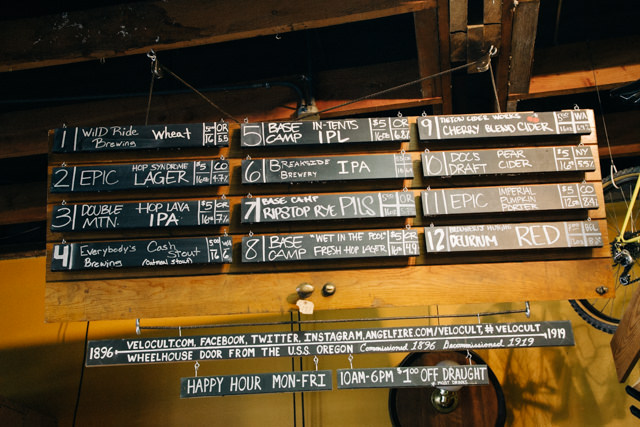 1 Wild Ride Brewing Wheat OR
2 EPIC HOP SYNDROME LAGER $5 CO
3 DOUBLE MTN. HOP LAVA IPA $5 OR
4 Everybody's Brewing Cash Stout (Oatmeal Stout) WA
5 BASE CAMP IN-TENTS IPL $5 OR
6 BREAKSIDE BREWERY IPA
7 BASE CAMP RIPSTOP RYE PILS $5 OR
8 BASE CAMP "WET IN THE POOL" FRESH HOP LAGER $5 OR
9 CIDER WORKS CHERRY BLEND CIDER WA
10 DOC'S DRAFT PEAR CIDER $5 NY
11 EPIC IMPERIAL PUMPKIN PORTER $5 CO
12 DELIRIUM RED
VELOCULT.COM, FACEBOOK, TWITTER, INSTAGRAM, ANGELFIRE.COM/VELOCULT, # VELOCULT
1896 WHEELHOUSE DOOR FROM THE U.S.S. OREGON Commissioned 1896 Decommissioned 1919 1919
HAPPY HOUR MON-FRI 10AM-6PM $1.00 OFF DRAUGHT